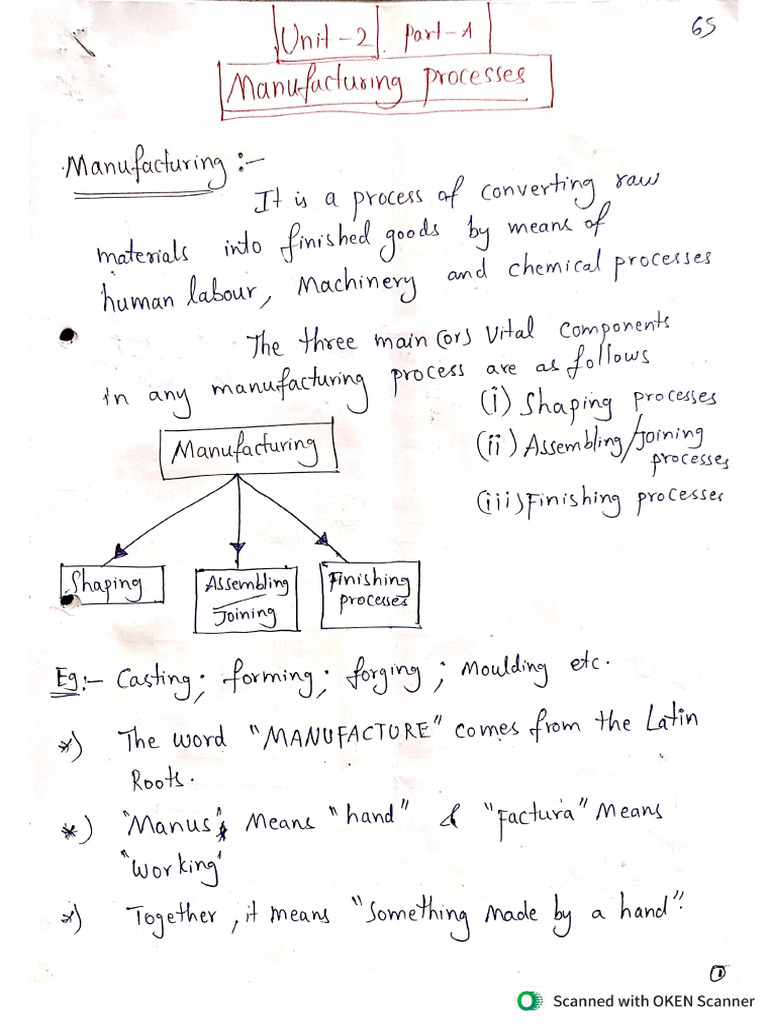 Unit-2 Part-1
65
Manufacturing processes
Manufacturing :-
It is a process of converting raw
materials into finished goods by means of
human labour, Machinery and chemical processes
The three main (or) Vital components
in any manufacturing process are as follows
(i) Shaping processes
(ii) Assembling/Joining
processes
(iii) Finishing processes
Manufacturing
Shaping
Assembling
Joining
Finishing
processes
Eg:- Casting; forming; forging; Moulding etc.
*) The word "MANUFACTURE" comes from the Latin
Roots.
*) "Manus" Means "hand" & "Factura" Means
"working"
*) Together, it means "Something Made by a hand".
1
Scanned with OKEN Scanner